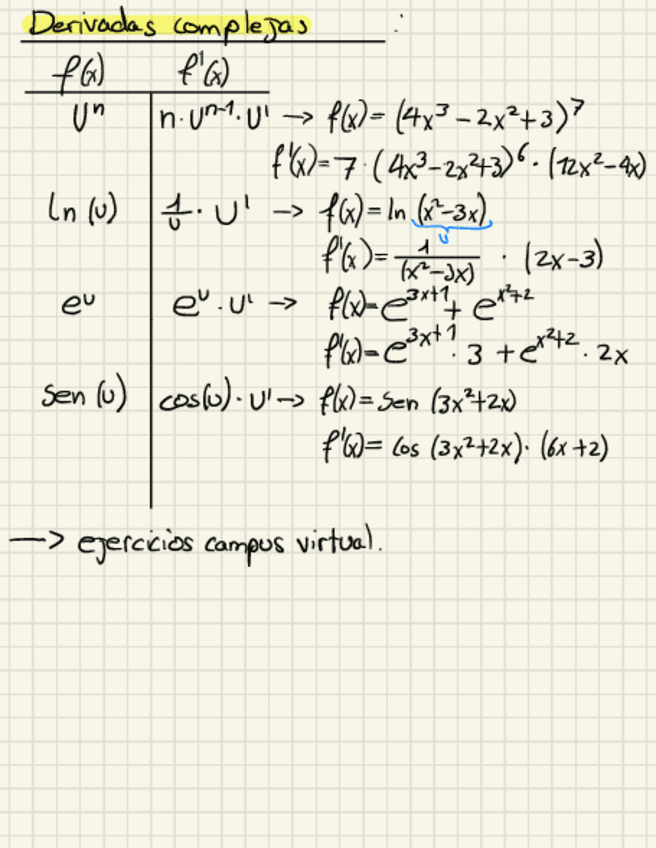 Derivadas complejas :
f(x) f'(x)
Uⁿ n·Uⁿ⁻¹·U' → f(x)= (4x³-2x²+3)⁷
f'(x)=7·(4x³-2x²+3)⁶·(12x²-4x)
ln (u) 1/u · U' → f(x)= ln (x²-3x)
u
f'(x)= 1/(x²-3x) · (2x-3)
eᵘ eᵘ·U' → f(x)=e³ˣ⁺¹+ e^(x²+2)
f'(x)=e³ˣ⁺¹·3 +e^(x²+2)·2x
Sen (u) cos(u)·U' → f(x)= Sen (3x²+2x)
f'(x)= Cos (3x²+2x)·(6x+2)
→ ejercicios campus virtual.